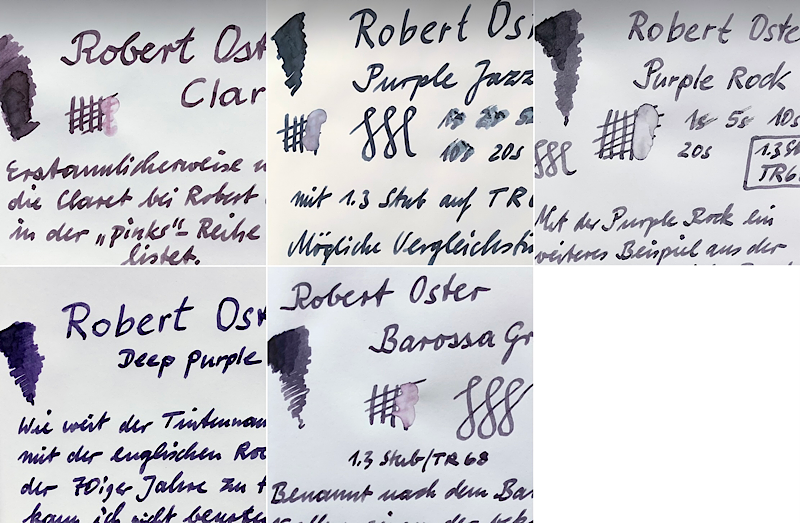 Robert Ost
Clar
Erstaunlicherweise
die Claret bei Robert
in der „pinks"- Reihe
listet.
Robert Os
Purple Jazz
1s 2s 5s
10s 20s
mit 1.3 Stub auf TR6
Mögliche Vergleichsti
Robert Oste
Purple Rock
1s 5s 10s
20s
1.3 St
TR6
Mit der Purple Rock ein
weiteres Beispiel aus der
Robert Ost
Deep Purple
Wie weit der Tintennam
mit der englischen Roc
der 70iger Jahre zu t
kann ich nicht beurte
Robert Oster
Barossa Gr
1.3 Stub/TR68
Benannt nach dem Bar